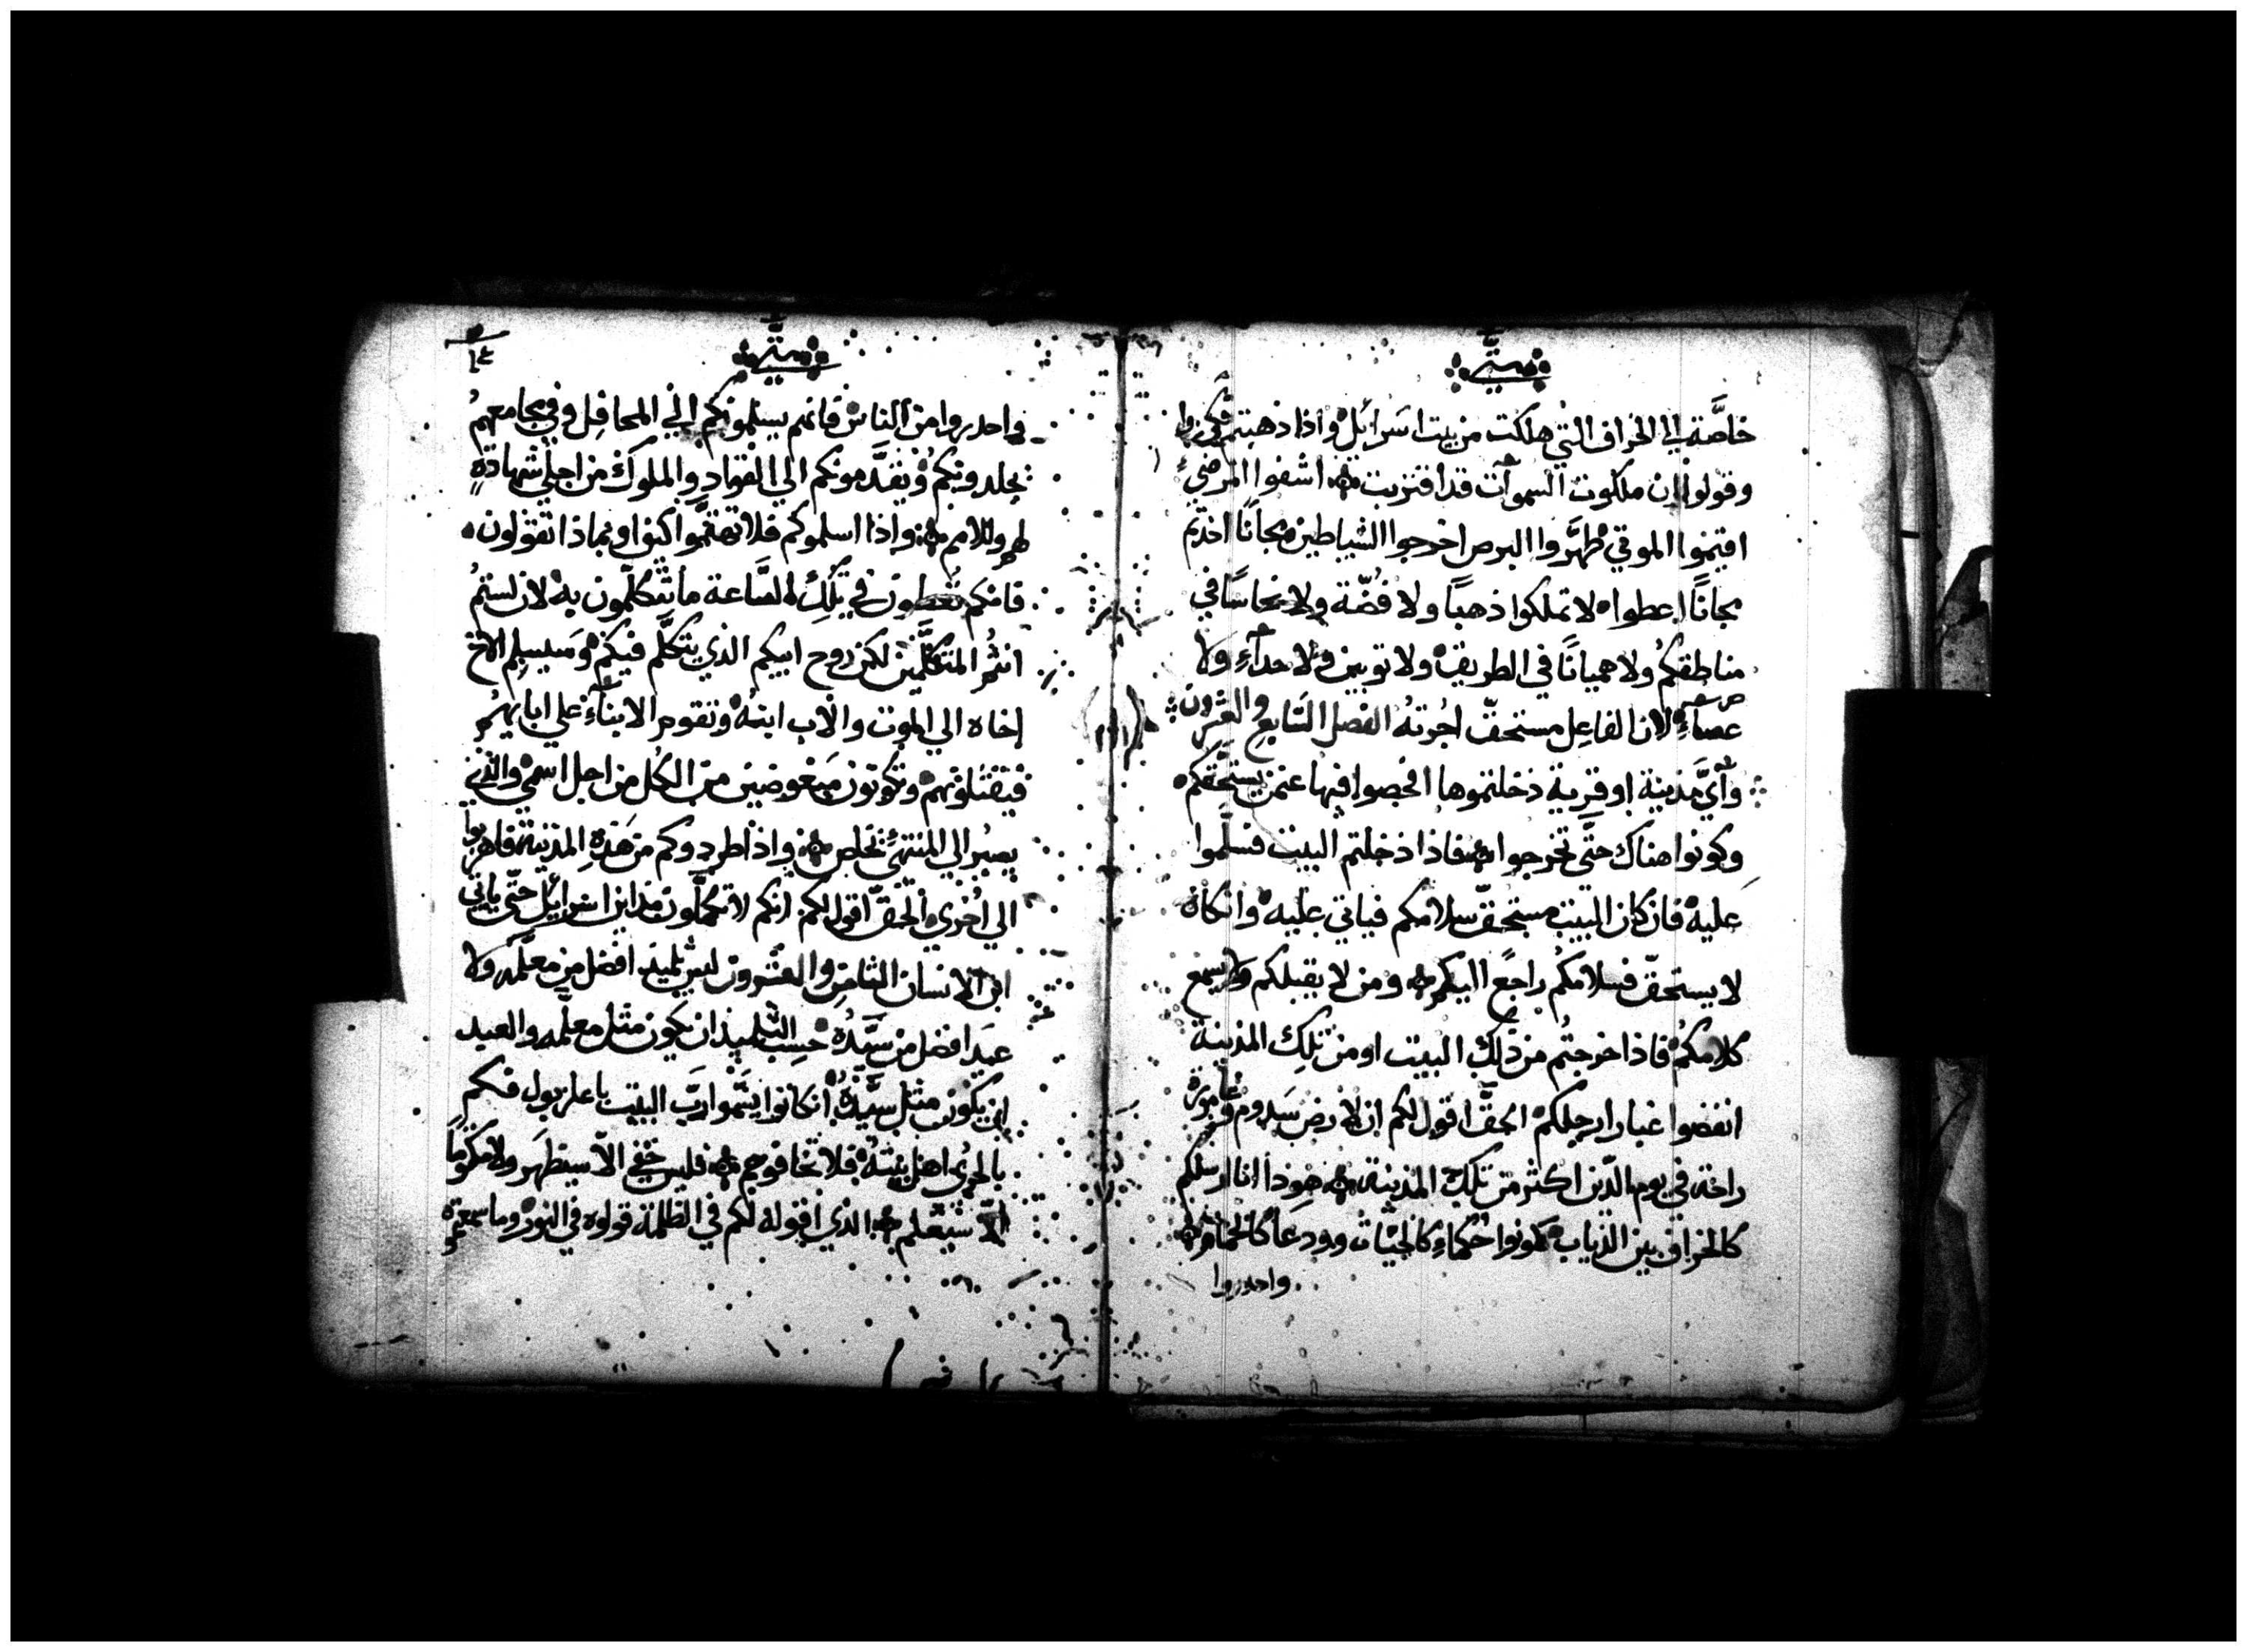 متي
خاصَّة الي الخراف التي هلكت من بيت اسرائيل واذا ذهبتم فكرزوا
وقولوا ان ملكوت السموات قد اقتربت اشفوا المرضي
اقيموا الموتي طهَّروا البرص اخرجوا الشياطين مجانًا اخذتم
مجانًا اعطوا لا تملكوا ذهبًا ولا فضّة ولا نحاسًا في
مناطقكم ولا هميانًا في الطريق ولا توبين ولا حداءً ولا
عصاءً لان الفاعل مستحقّ اجرته الفصل السابع والعشرون
وايَّ مدينة او قرية دخلتموها افحصوا فيها عمن يستحقكم
وكونوا هناك حتَّي تخرجوا فاذا دخلتم البيت فسلّموا
عليه فان كان البيت مستحقّ سلامكم فياتي عليه وانكان
لا يستحقّ فسلامكم راجعً اليكم ومن لا يقبلكم ولا يسمع
كلامكم فاذا خرجتُم من ذلك البيت او من تلك المدينة
انفضوا غبار ارجلكم الحقَّ اقول لكم ان لارض سدوم وغامورة
راحة في يوم الدّين اكثر من تلك المدينة هوذا انا ارسلكم
كالخراف بين الذياب كونوا حُكماء كالحيّات وودعاً كالحمام
واحدروا
١٤
متي
واحدروا من الناس فانهم يسلمونكم الي المحافل وفي مجامعهم
يجلدونكم ويقدَّمونكم الي القواد والملوك من اجلي شهادةً
لهم وللامم واذا اسلموكم فلا تهتمّوا كيف او بماذا تقولون
فانكم تعطون في تلك السَّاعة ما تتكلّمون به لان لستمُ
انتُم المتكلّمين لكن روح ابيكم الذي يتكلّم فيكم وسيسلم الاخ
اخاه الي الموت والاب ابنهُ وتقوم الابناء علي ابايهم
فيقتلونهم وتكونون مبغوضين من الكُل من اجل اسمي والذي
يصبر الي المنتهيٰ يخلص واذا طردوكم من هذه المدينة فاهربوا
الي اُخري الحقّ اقول لكم انكم لا تكملّون مداين اسرائيل حتّي ياتي
ابن الانسان الثامن والعشرون ليس تلميذ افضل من معلّمه ولا
عبد افضل من سيَّدهُ حسب التلميذ ان يكون مثل معلّمه والعبد
ان يكون مثل سيَّدهُ انكانوا يسَّموا ربَّ البيت باعلزبول فكم
بالحري اهل بيتهُ فلا تخافوهم فليس خفي الاّ سيظهر ولا مكتومًا
الاّ سيعلم الذي اقوله لكم في الظلمة قولوه في النور وما سمعتموه